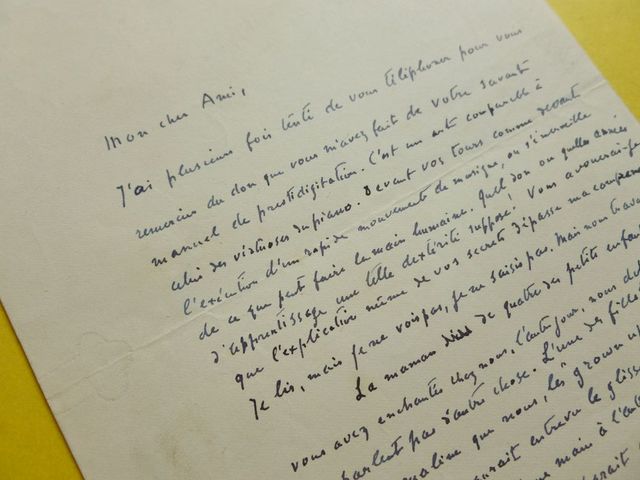 Mon cher Ami,
J'ai plusieurs fois tenté de vous téléphoner pour vous
remercier du don que vous m'avez fait de votre savant
manuel de prestidigitation. C'est un art comparable à
celui des virtuoses du piano. Devant vos tours comme devant
l'exécution d'un rapide mouvement de musique, on s'émerveille
de ce que peut faire la main humaine. Quel don ou quelles années
d'apprentissage une telle dextérité suppose! Vous avouerai-je
que l'explication même de vos secrets dépasse ma
Je lis, mais je ne vois pas, je ne saisis pas. Mais nous
La maman de quatre des petits
vous avez enchantés chez nous, l'autre jour, nous
parlent pas d'autre chose. L'une des
que nous, les "grown
entrevu le
main à